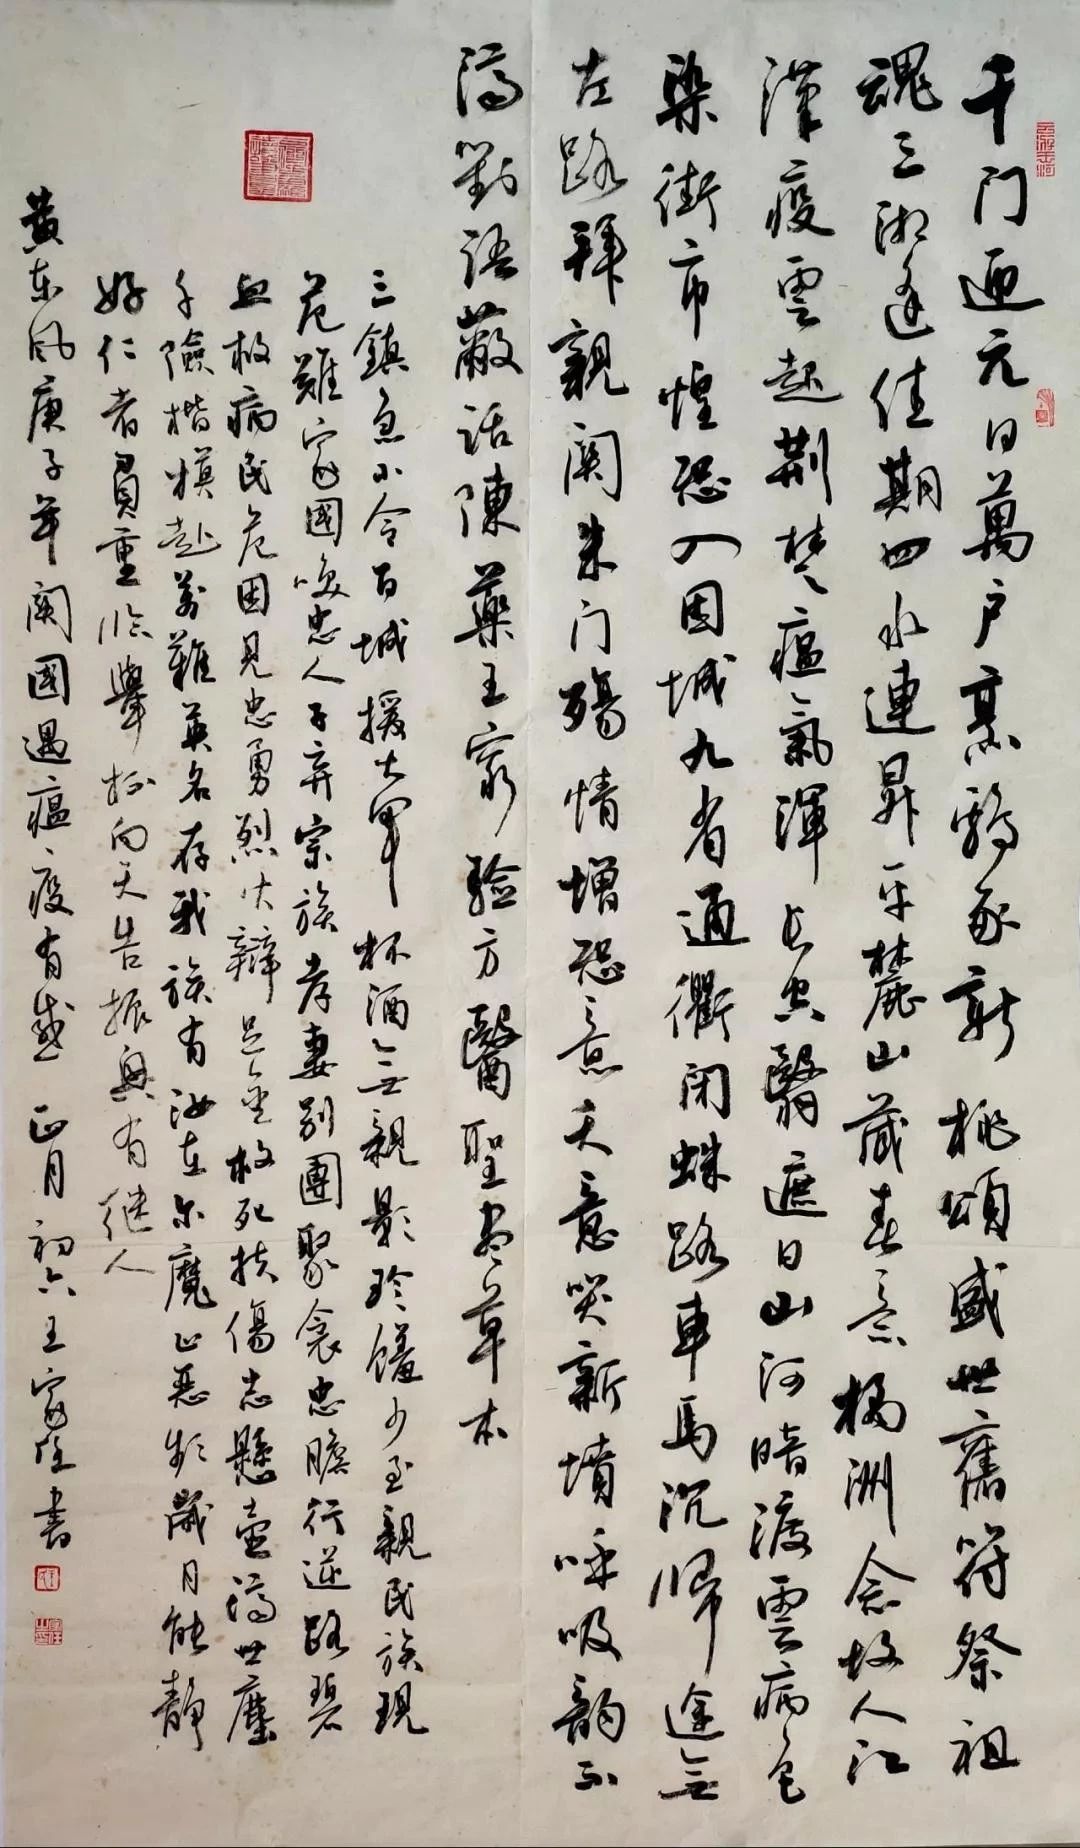 千门迎元日萬户烹鸡豚新桃頌盛世舊符祭祖
魂三湘逢佳期四水連昇平麓山藏春意橘洲念故人江
漢疫雲起荆楚瘟氣渾長空翳遮日山河暗渡雲病色
染街市惶恐入困城九省通衢闭蛛路車馬沉歸途无
左路拜親関朱门殤情增恐意天意哭新墳呼吸韵不
濟對語蔽話陳藥王家验方醫聖尝草本
三鎮急小令百城援大軍杯酒无親影珍饈少至親民族現
危難家國唤忠人子弃宗族孝妻别團聚衾忠膽行逆路碧
血救病民危困見忠勇烈火辯足金救死扶傷志懸壶濟世塵
千險楷模赴萬難英名存我族有汝在尔魔止惡歲月能静
好仁者負重临舉杯向天告振興有继人
黄东风庚子年関國遇瘟疫有感 正月初六王家 書